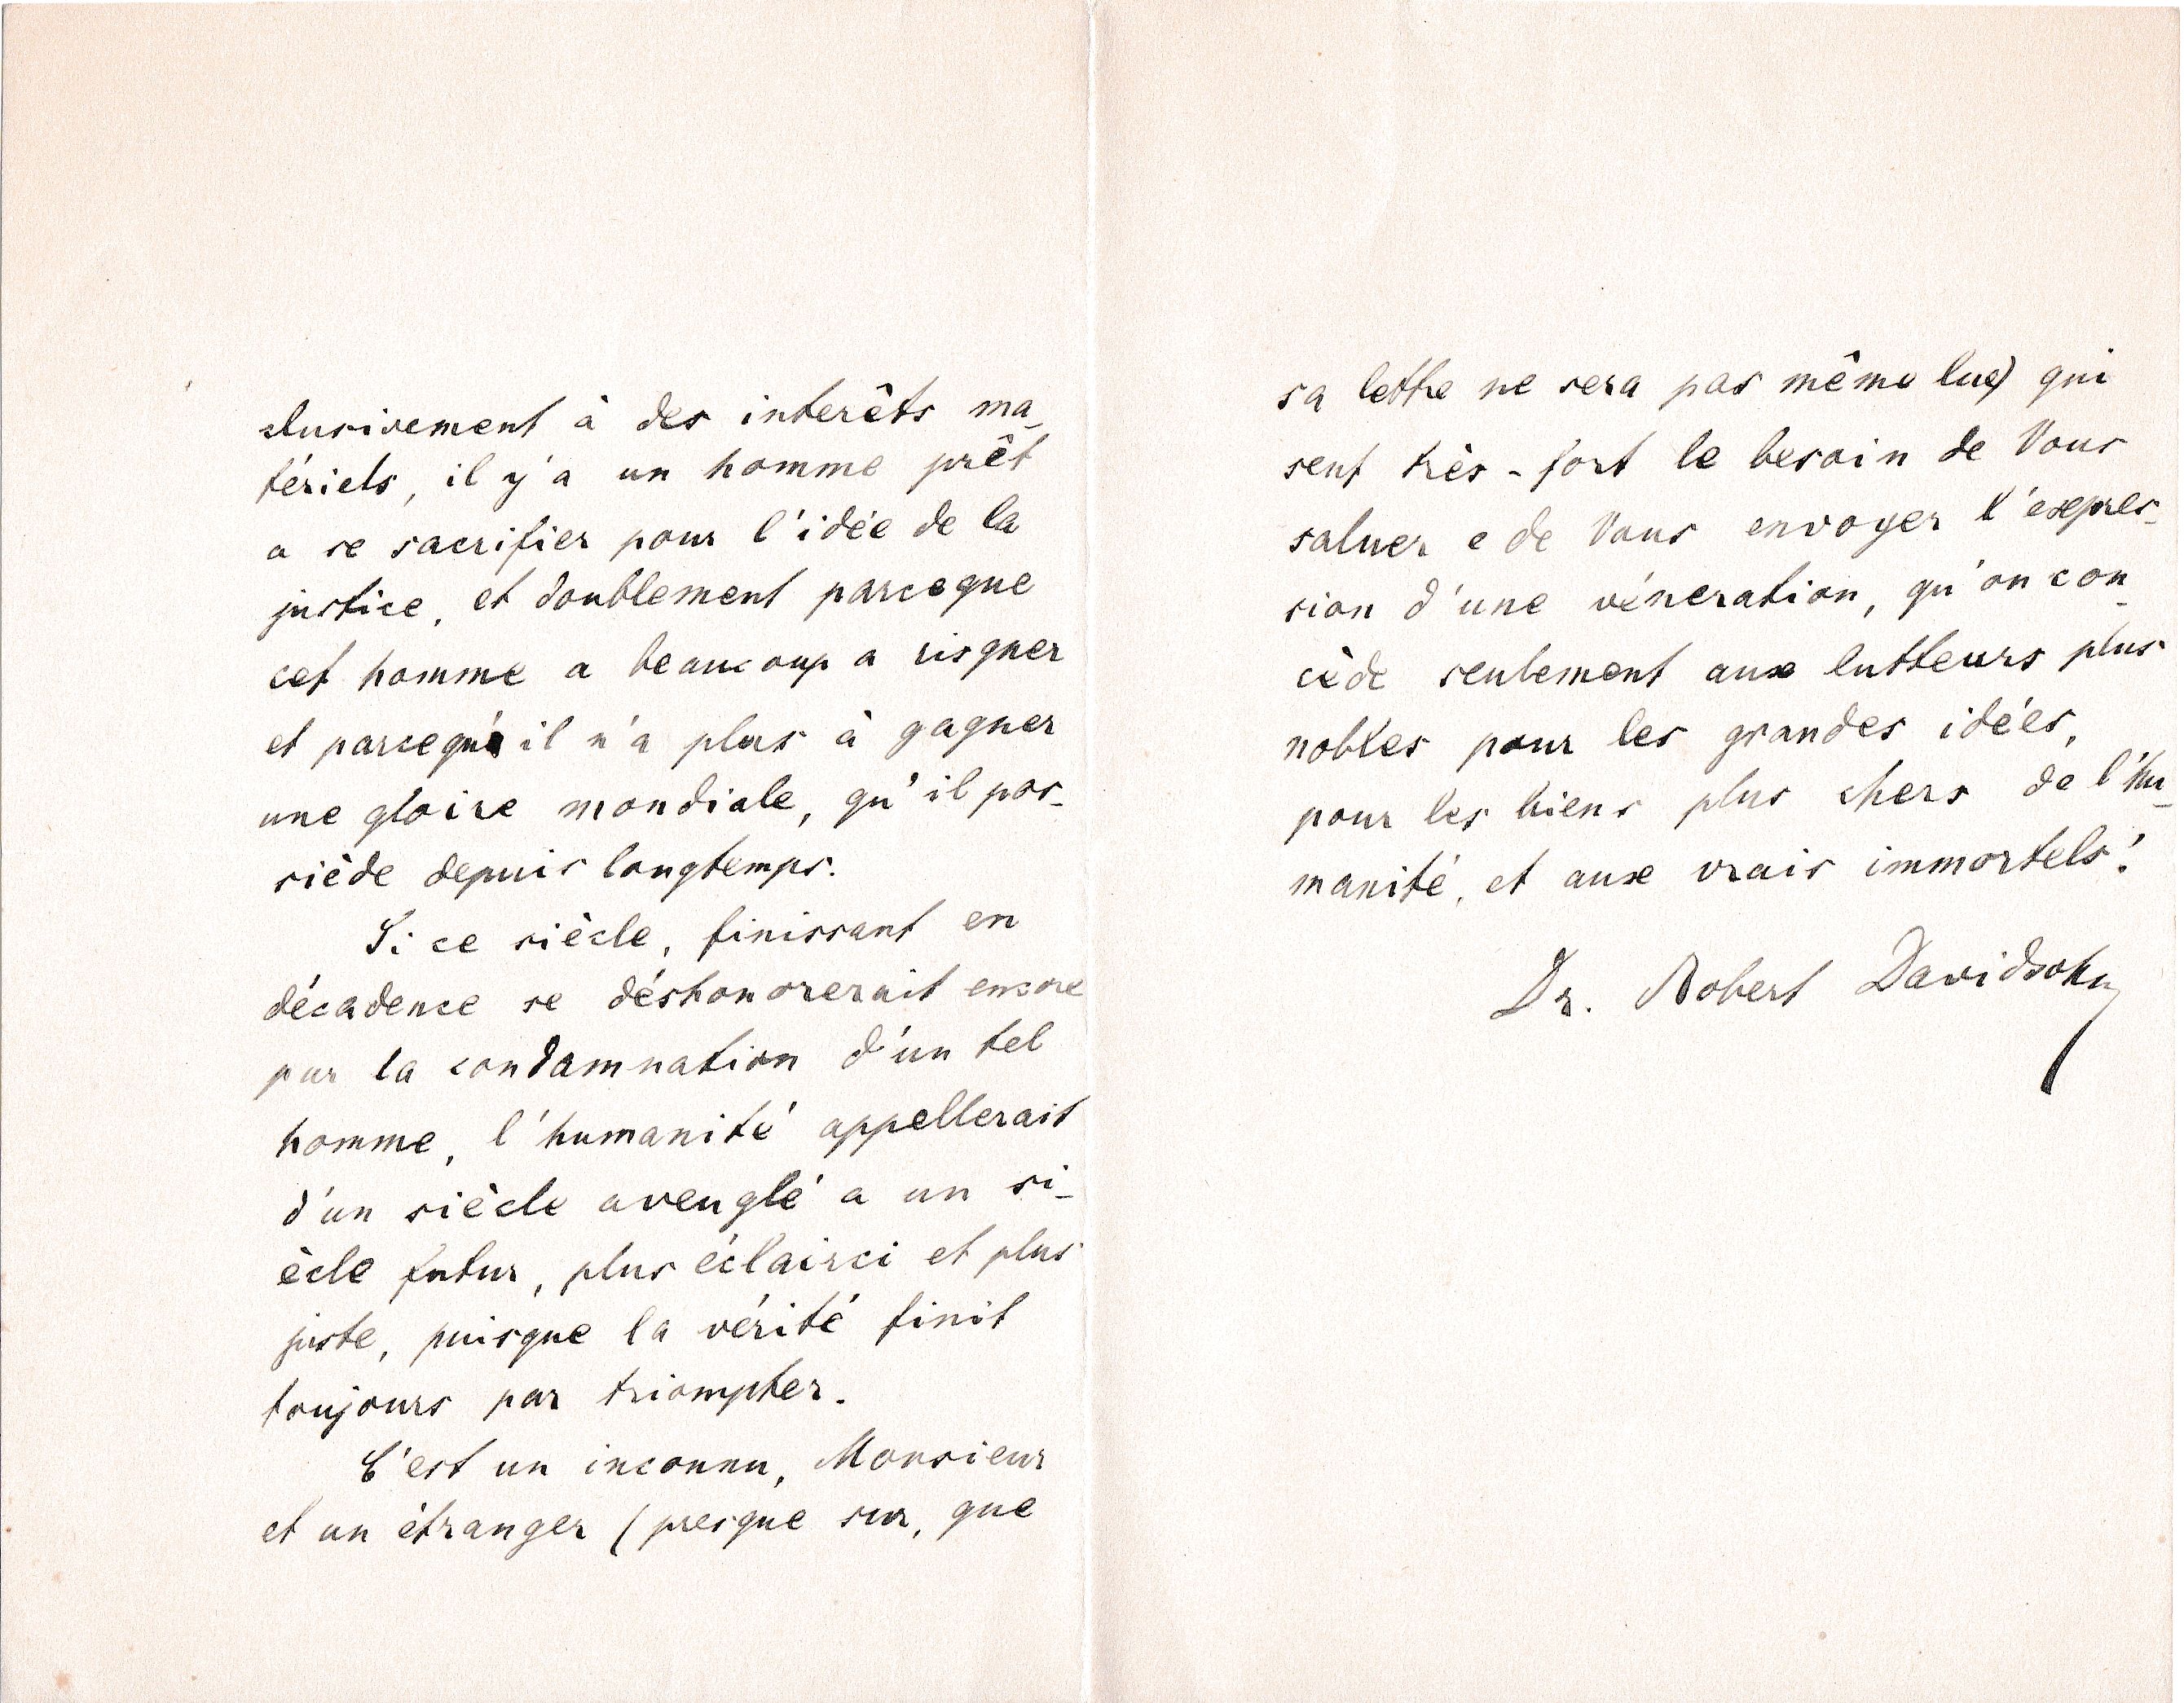 clusivement à des interêts ma-
tériels, il y'a un homme prêt
a se sacrifier pour l'idée de la
justice, et doublement parceque
cet homme a beaucoup a risquer
et parcequ'il n'a plus à gagner
une gloire mondiale, qu'il pos-
siède depuis longtemps.
Si ce siècle, finissant en
décadence se déshonorerait encore
par la condamnation d'un tel
homme, l'humanité appellerait
d'un siècle aveuglé a un si-
ècle futur, plus éclairci et plus
juste, puisque la vérité finit
toujours par triompher.
C'est un inconnu, Monsieur
et un étranger (presque sur, que
sa lettre ne sera pas même lue) qui
sent très-fort le besoin de Vous
saluer e de Vous envoyer l'expres-
sion d'une véneration, qu'on con-
cède seulement aux lutteurs plus
nobles pour les grandes idées,
pour les biens plus chers de l'hu-
manité, et aux vrais immortels!
Dr. Robert Davidsohn